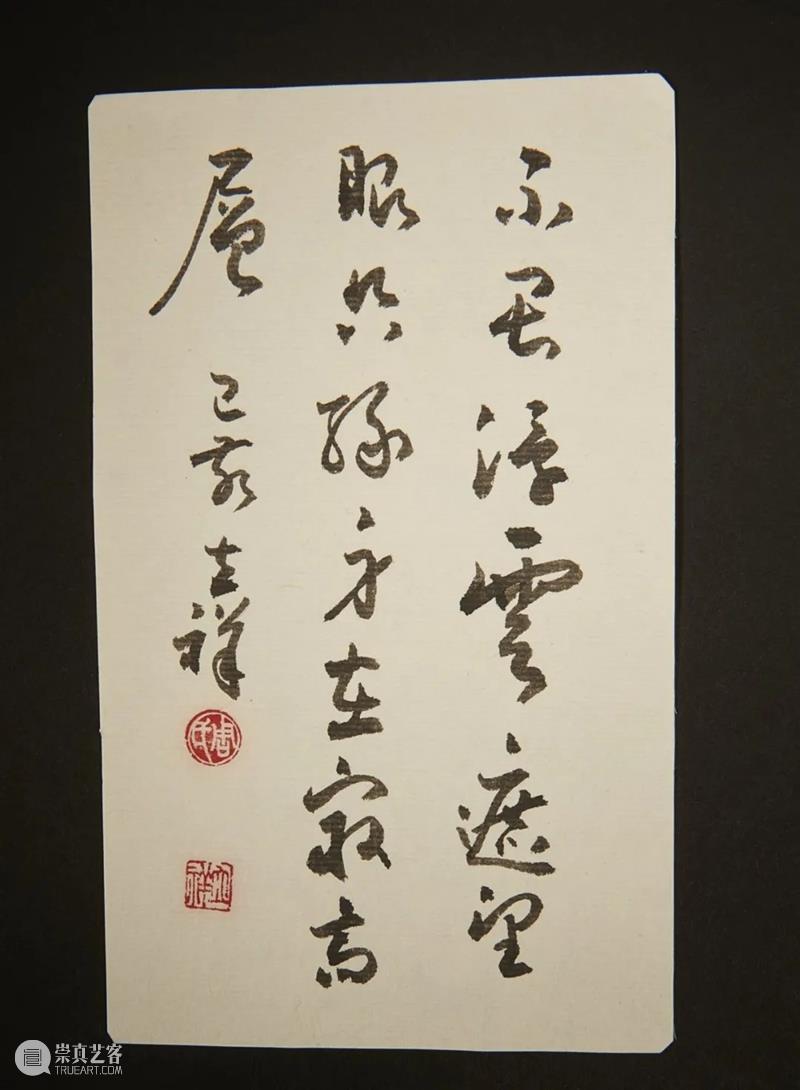 不畏浮雲遮望
眼只緣身在最高
層
己亥 祥
崇真艺客
TRUEART.COM